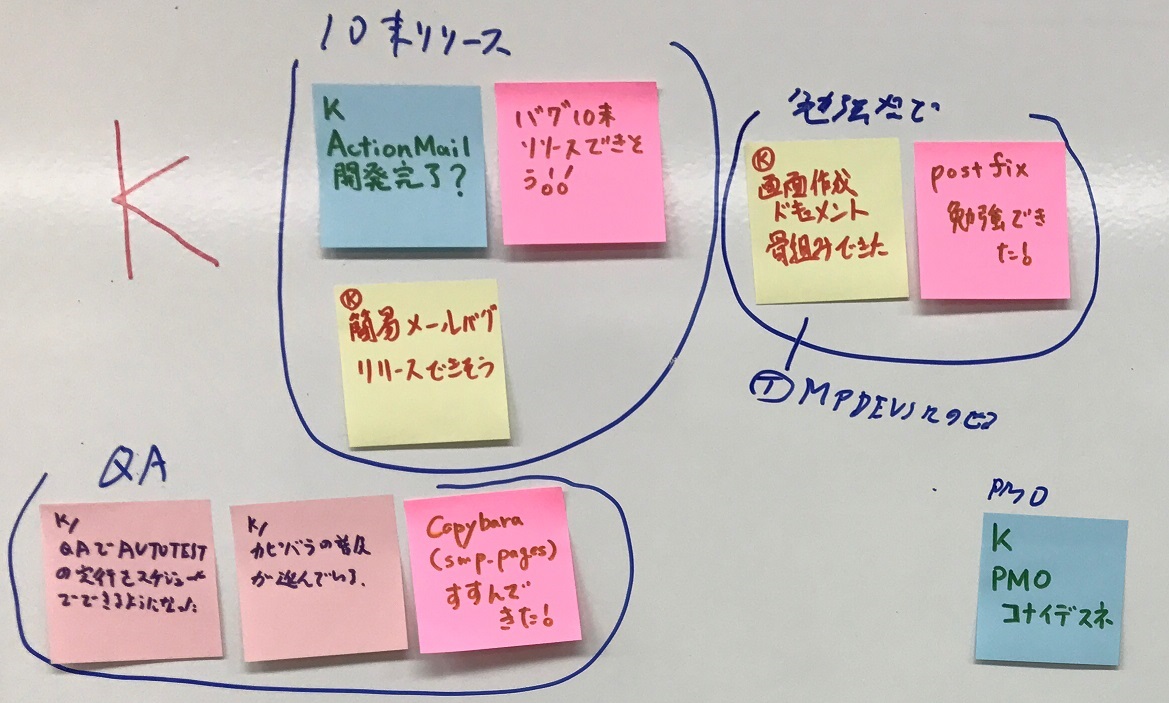 K
10末リリース
K
ActionMail
開発完了?
バグ10末
リリースできそ
う!!
Ⓚ
簡易メールバグ
リリースできそう
Ⓚ
画面作成
ドキュメント
骨組みできた
postfix
勉強でき
た!
Ⓣ MPDEVS
QA
K/
QAでAUTOTEST
の実行をスケジュール
でできるようになった
K/
カピバラの普及
が進んでいる.
Capybara
(smp-pages)
すすんで
きた!
PMO
K
PMO
コナイデスネ